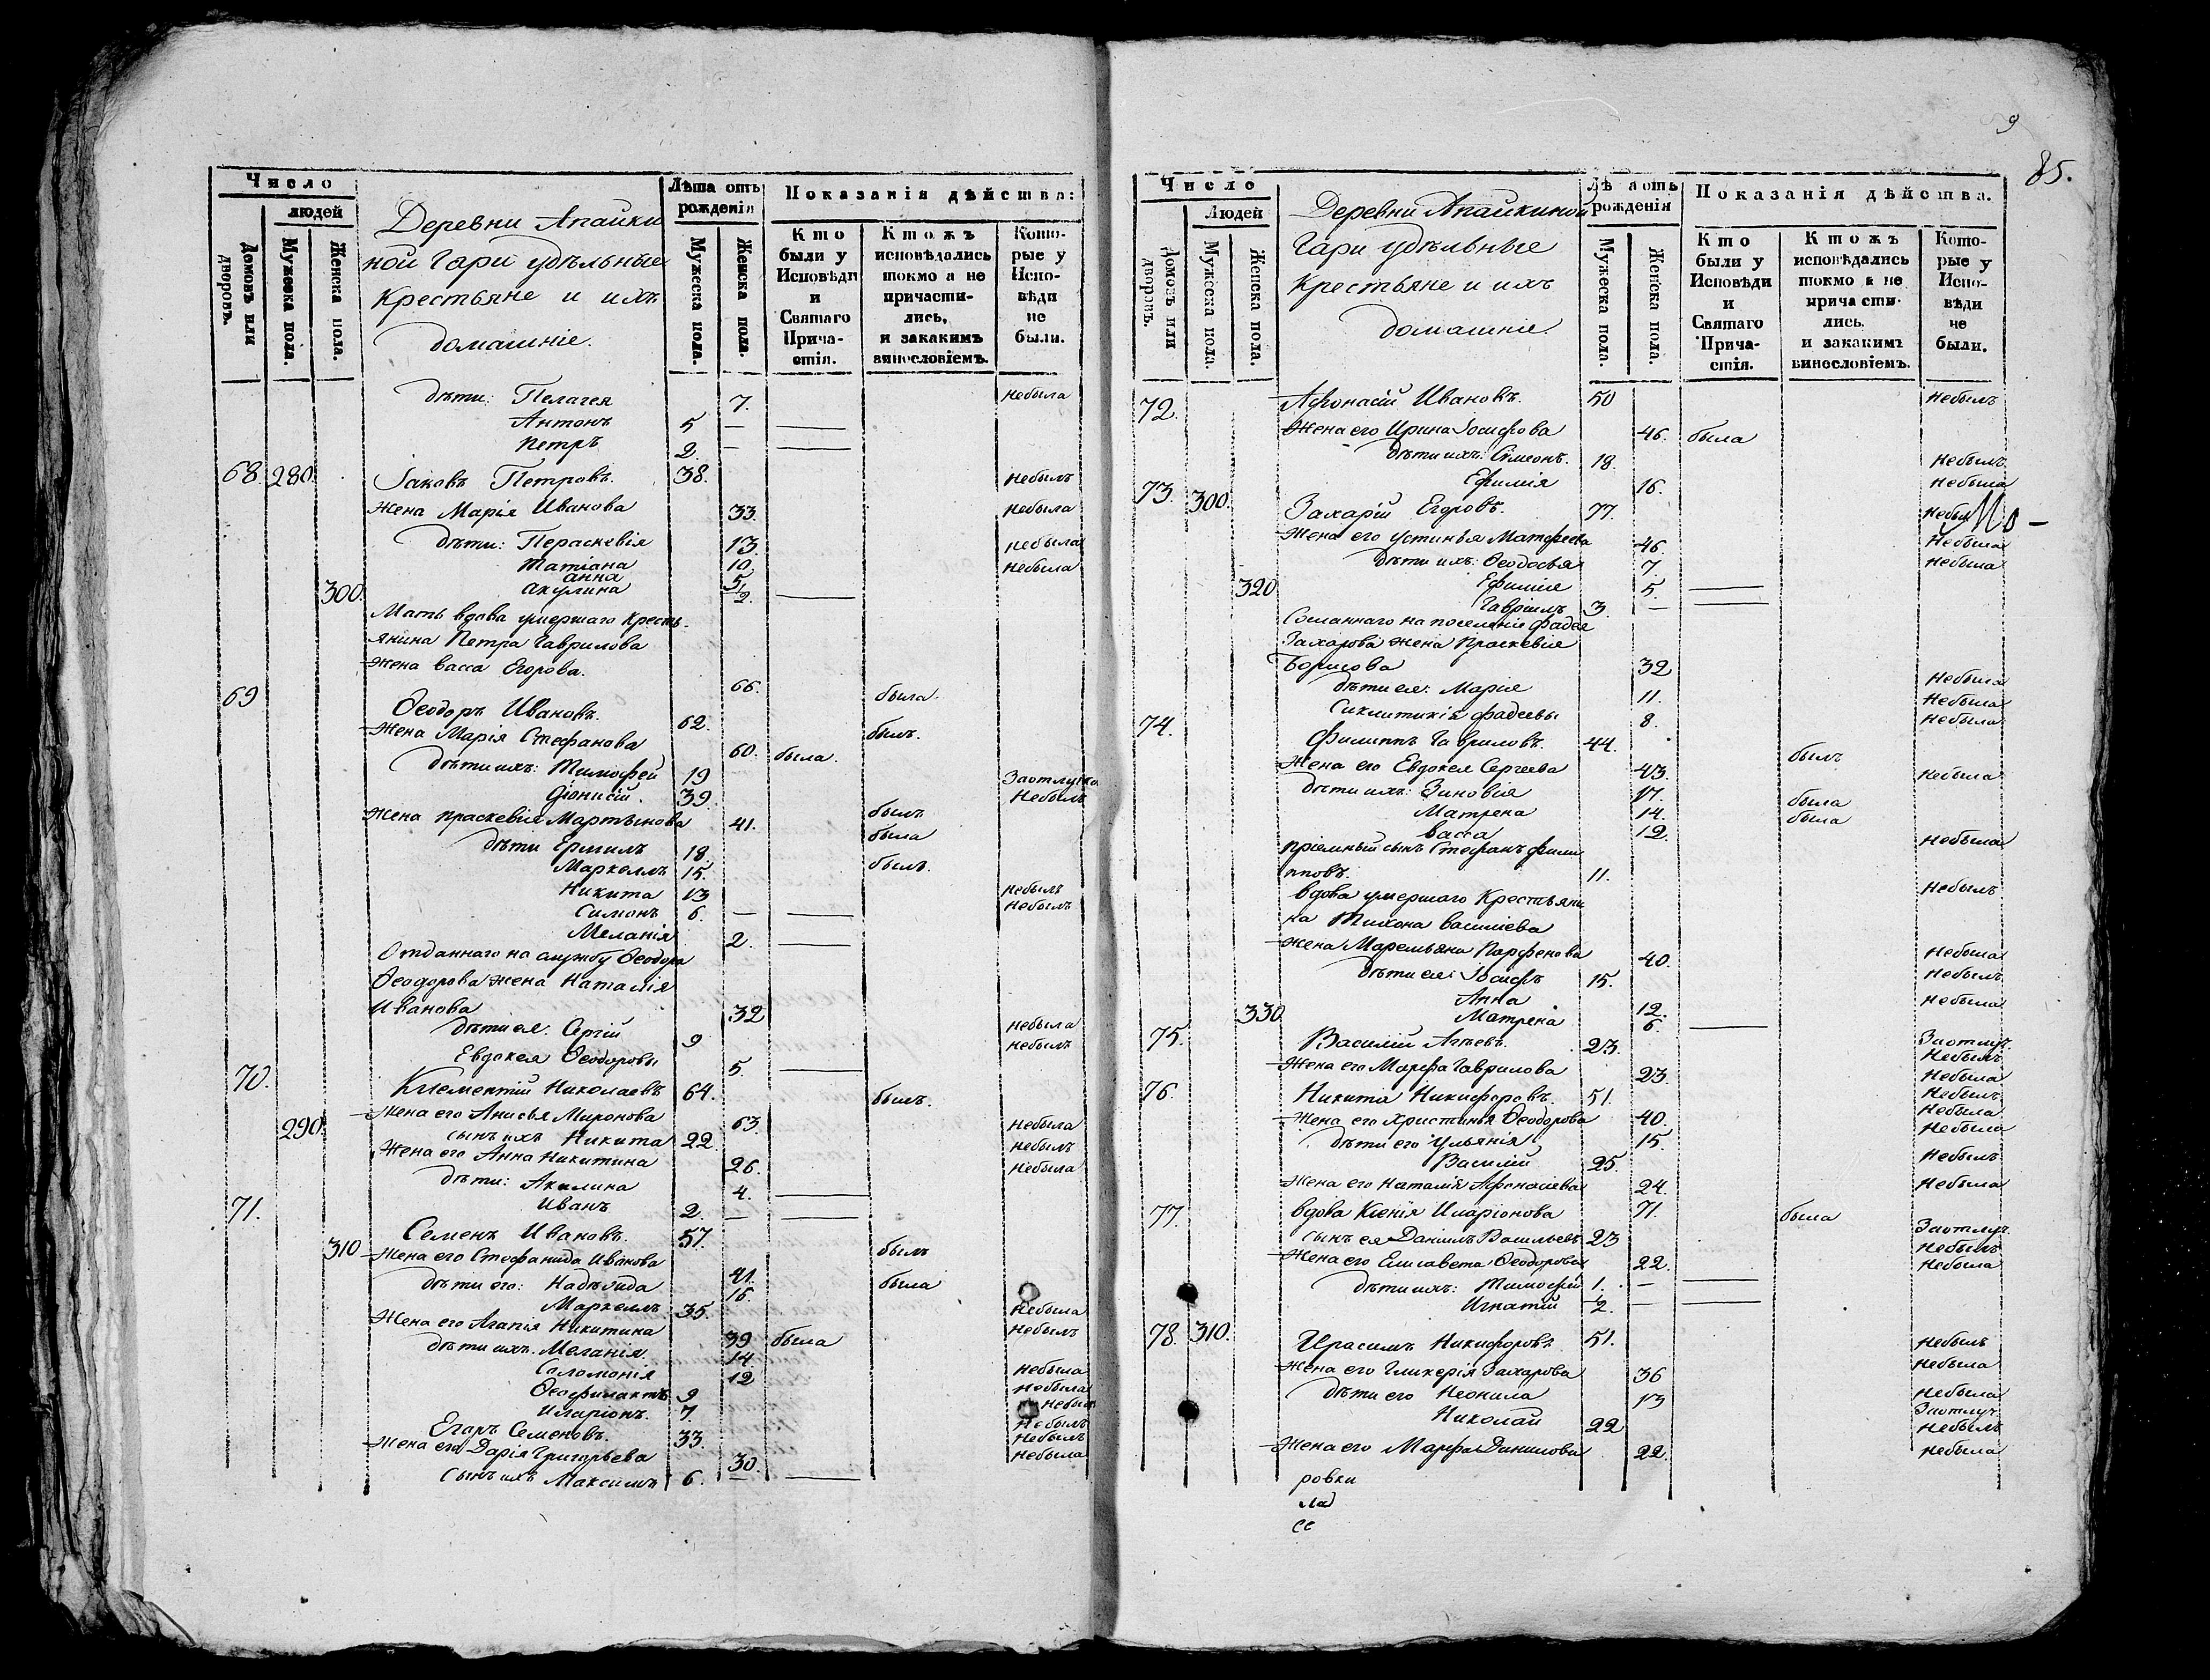 Число
людей
Домовъ или дворовъ.
Мужеска пола.
Женска пола.
Деревни Апайки
ной Гари удѣльные
Крестьяне и ихъ
домашніе.
Лѣта отъ
рожденія
Мужеска пола.
Женска пола.
Показанія дѣйства:
Кто
были у
Исповѣди
и
Святаго
Прича-
стія.
Ктожъ
исповѣдались
токмо а не
причасти-
лись,
и закакимъ
винословіемъ.
Кото-
рые у
Испо-
вѣди
не
были.
дѣти: Пелагея 7. небыла
Антонъ 5 —
Петръ 2. —
68. 280. Іаковъ Петровъ. 38. небылъ
Жена Марія Иванова 33. небыла
дѣти: Пераскевія 13. небыла
Татіана 10. небыла
анна 5
300. акулина 1/2.
Мать вдова умершаго Кресть-
янина Петра Гаврилова
жена васса Егорова. 66. была.
69 Ѳеодоръ Ивановъ. 62. былъ.
Жена Марія Стефанова 60. была.
дѣти ихъ: Тимофей 19 Заотлучко.
Діонисій. 39. Небылъ
Жена праскевія Мартынова 41. былъ
дѣти Ермилъ 18. была
Маркеллъ 15. былъ.
Никита 13 небылъ
Симонъ 6. — небылъ
Меланія 2.
Отданнаго на службу Ѳеодора
Ѳеодорова жена Наталія
Иванова 32 небыла
дѣти ея. Сергій 9 небылъ
Евдокея Ѳеодоровы 5.
70. Климентій Николаевъ 64. былъ.
Жена его Анисья Миронова 63. небыла
290. сынъ ихъ Никита 22. небылъ
Жена его Анна Никитина 26. небыла
дѣти: Акилина 4.
Иванъ 2. —
71. Семенъ Ивановъ. 57. былъ
310 Жена его Стефанида Иванова 41. была
дѣти его: Надѣжда 16. небыла
Маркеллъ 35. небылъ
Жена его Агапія Никитина 39 была
дѣти ихъ. Меланія. 14 небыла
Соломонія 12 небыла
Ѳеофилактъ 9 небыл
Иларіонъ. 7. Небылъ
Егоръ Семеновъ. 33. небылъ
Жена его Дарія Григорьева 30. небыла
сынъ ихъ Максимъ 6. —
9
85.
Число
Людей
Домовъ или дворовъ.
Мужеска пола.
Женска пола.
Деревни Апайкиной
Гари удѣльные
Крестьяне и ихъ
домашніе.
Лѣ а отъ
рожденія
Мужеска пола.
Женска пола.
Показанія дѣйства.
Кто
были у
Исповѣди
и
Святаго
Прича-
стія.
Ктожъ
исповѣдались
токмо а не
причасти-
лись.
и закакимъ
винословіемъ.
Кото-
рые у
Испо-
вѣди
не
были.
72. Афонасій Ивановъ. 50 небылъ
Жена его Ирина Іосифова 46. была
дѣти ихъ: Симеонъ. 18. небылъ
Ефимія 16. небыла
73. 300. Захарій Егоровъ. 77. небыл
Жена его устинья Матфеева 46. Небыла
дѣти ихъ: Ѳеодосья 7. небыла
320 Ефимія 5.
Гавріилъ 3. —
Сосланнаго на поселеніе фадея
Захарова жена Праскевія
Борисова 32 небыла
дѣти ея: Марія 11. небыла
Сиклитикія фадеевы 8. небыла
74. Филиппъ Гавриловъ. 44. былъ
Жена его Евдокея Сергеева 43. небыла
дѣти ихъ: Зиновія 17. была
Матрена 14. была
васса 12. небыла
пріемный сынъ Стефанъ фили
пповъ. 11. небылъ
вдова умершаго Крестьяни
на Тихона василіева
жена Маремьяна Парфенова 40. небыла
дѣти ея: Іосифъ 15. небылъ
Анна 12. небыла
330 Матрена 6.
75. Василій Агѣевъ. 23. Заотлуч. Небылъ
Жена его Марфа Гаврилова 23. небыла
76. Никита Никифоровъ. 51. небылъ
Жена его Христинья Ѳеодорова 40. небыла
дѣти его Ульянія 15. небыла
Василій 25. небылъ
Жена его Наталія Афонасіева 24. небыла
77. вдова Ксенія Иларіонова 71. была
сынъ ея Данилъ Васильевъ 23 Заотлуч. небылъ
Жена его Елисавета Ѳеодорова 22. небыла
дѣти ихъ: Тимофей 1. —
Игнатій 1/2. —
78. 310. Ирасимъ Никифоровъ 51. небылъ
Жена его Гликерія Захарова 36 небыла
дѣти его Неонила 13 небыла
Николай 22 Заотлуч. небылъ
Жена его Марфа Данилова 22. небыла
ровки
ла
сс